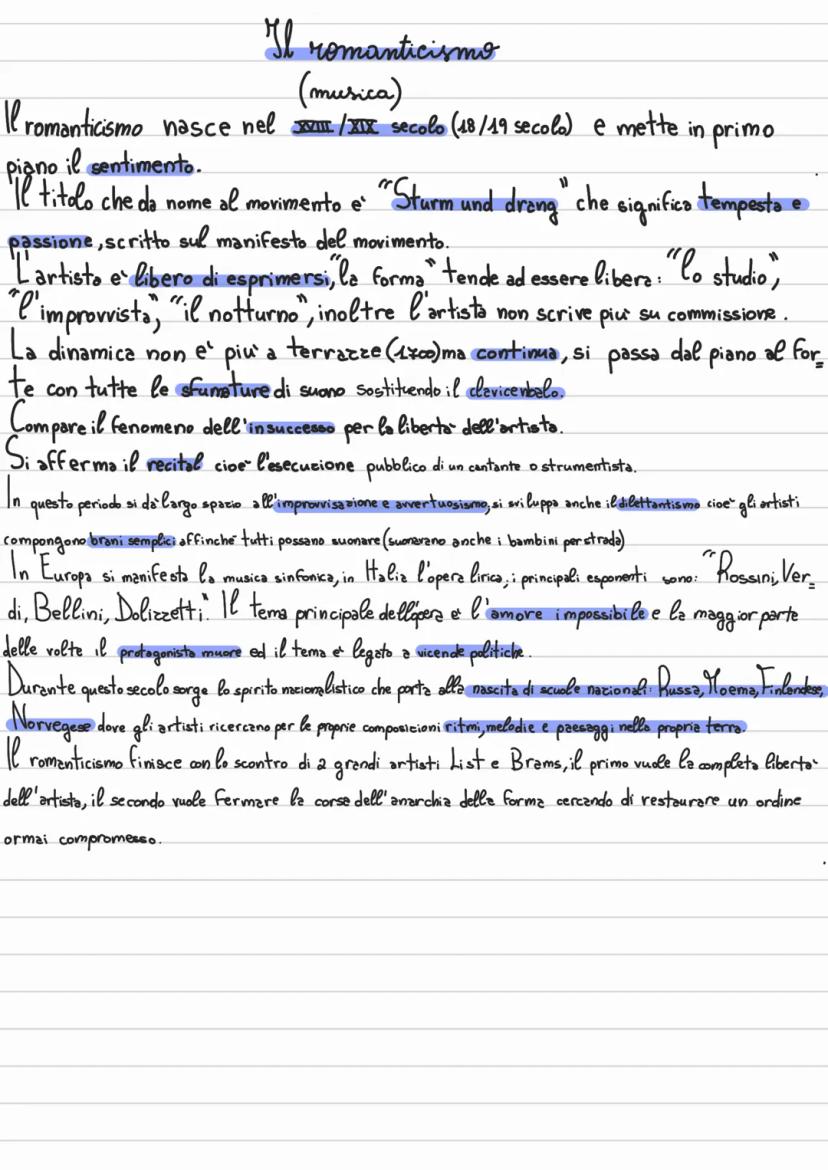 Il romanticismo
(musica)
Il romanticismo nasce nel XVIII/XIX secolo (18/19 secolo) e mette in primo
piano il sentimento.
Il titolo che da nome al movimento e' "Sturm und drang" che significa tempesta e
passione, scritto sul manifesto del movimento.
L'artista e' libero di esprimersi, "la forma" tende ad essere libera: "lo studio",
"l'improvvista", "il notturno", inoltre l'artista non scrive piu' su commissione.
La dinamica non e' piu' a terrazze (1700) ma continua, si passa dal piano al for=
te con tutte le sfumature di suono sostituendo il clavicenbalo.
Compare il fenomeno dell'insuccesso per la liberta' dell'artista.
Si afferma il recital cioe' l'esecuzione pubblico di un cantante o strumentista.
In questo periodo si da' largo spazio all'improvvisazione e avvertuosismo, si sviluppa anche il dilettantismo cioe' gli artisti
compongono brani semplici affinche' tutti possano suonare (suonavano anche i bambini per strada)
In Europa si manifesta la musica sinfonica, in Italia l'opera lirica, i principali esponenti sono: "Rossini, Ver=
di, Bellini, Dolizzetti". Il tema principale dell'opera e' l'amore impossibile e la maggior parte
delle volte il protagonista muore ed il tema e' legato a vicende politiche.
Durante questo secolo sorge lo spirito nazionalistico che porta alla nascita di scuole nazionali: Russa, Moema, Finlandese,
Norvegese dove gli artisti ricercano per le proprie composizioni ritmi, melodie e paesaggi nella propria terra.
Il romanticismo finisce con lo scontro di 2 grandi artisti List e Brams, il primo vuole la completa liberta'
dell'artista, il secondo vuole fermare la corsa dell'anarchia della forma cercando di restaurare un ordine
ormai compromesso.